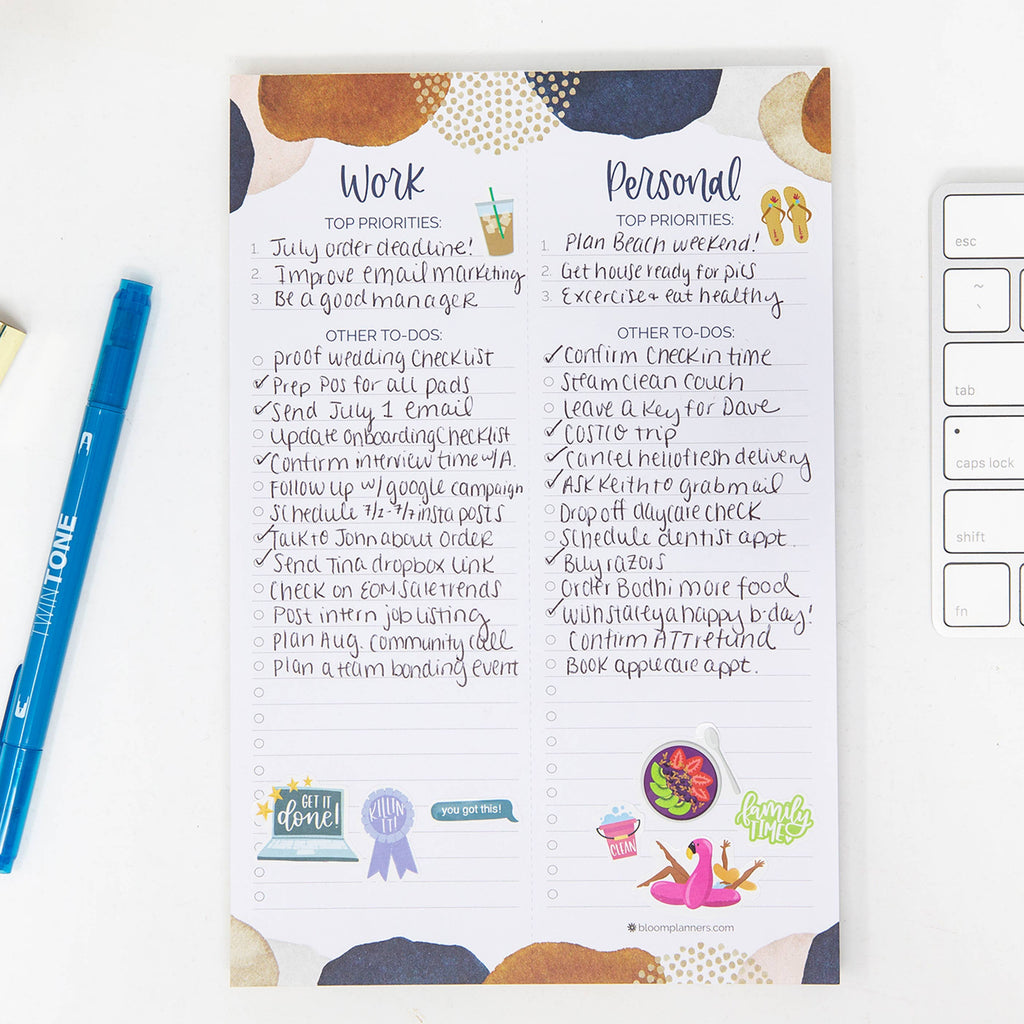 Work
TOP PRIORITIES:
1. July order deadline!
2. Improve email marketing
3. Be a good manager
OTHER TO-DOS:
proof wedding checklist
Prep POs for all pads
Send July 1 email
Update onboarding checklist
Confirm interview time w/A.
Follow up w/google campaign
Schedule 7/2-7/7 insta posts
Talk to John about order
Send Tina dropbox link
Check on EOM sale trends
Post intern job listing
Plan Aug. community call
Plan a team bonding event
GET IT
done!
KILLIN
IT!
you got this!
Personal
TOP PRIORITIES:
1. Plan Beach weekend!
2. Get house ready for pics
3. Excercise + eat healthy
OTHER TO-DOS:
Confirm Check in time
Steam clean couch
leave a key for Dave
COSTCO trip
Cancel hellofresh delivery
ASK Keith to grab mail
Drop off daycare check
Schedule dentist appt.
Buy razors
Order Bodhi more food
Wish stacey a happy b-day!
Confirm ATT refund
Book applecare appt.
CLEAN
family
TIME
bloomplanners.com
TWINTONE
esc
~
`
tab
caps lock
shift
fn